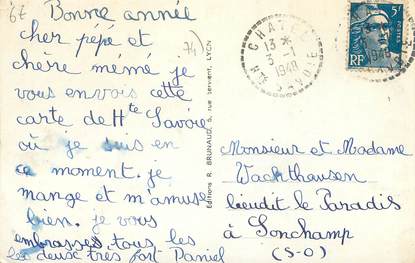 67 Bonne année
cher pépé et
chère mémé je
vous envois cette
carte de Hte Savoie
où je suis en
ce moment. je
mange et m'amuse
bien. je vous
embrasses tous les
les deux très fort Daniel
74)
Editions R. BRUNAUD, 6, rue LYON
CHA
13 *
3 -1
1948
5F
RF
1948
Monsieur et Madame
Wachthausen
lieudit le Paradis
à Sonchamp
(S-O)